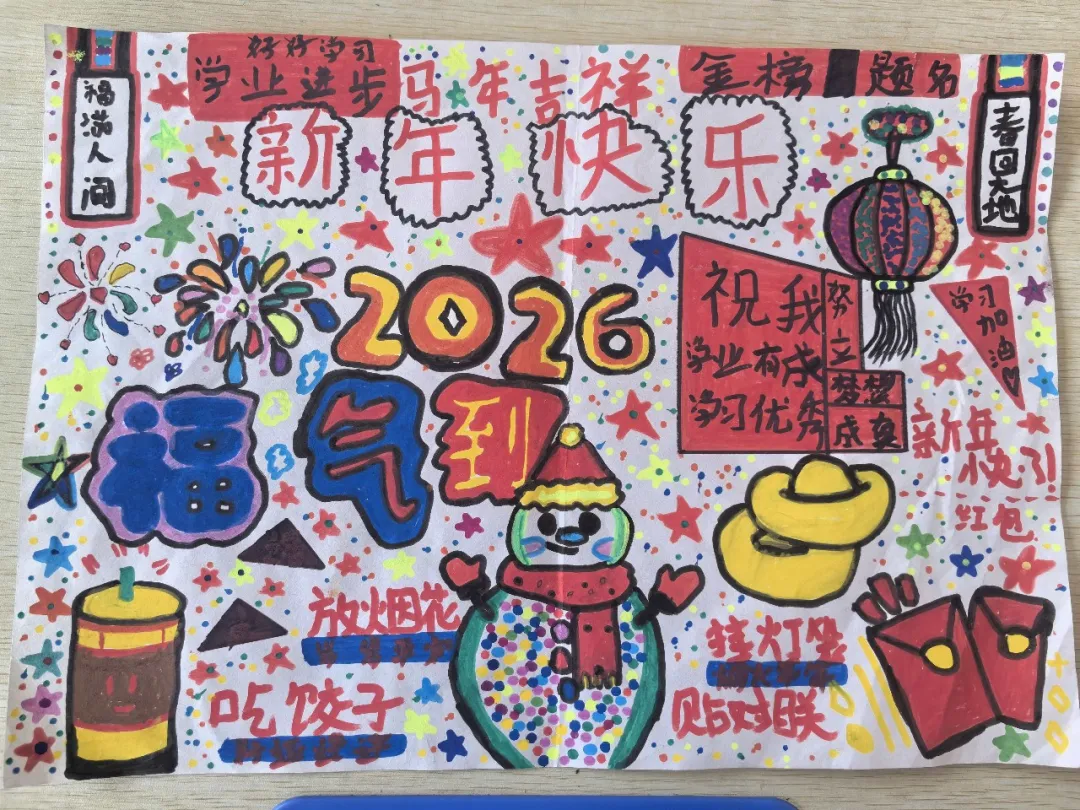 好好学习
学业进步
马年吉祥
金榜题名
福满人间
春回大地
新年快乐
2026
祝我
学业有成
学习优秀
努力
梦想
成真
学习
加油
福气到
新年
快乐
红包
放烟花
挂灯笼
吃饺子
贴对联